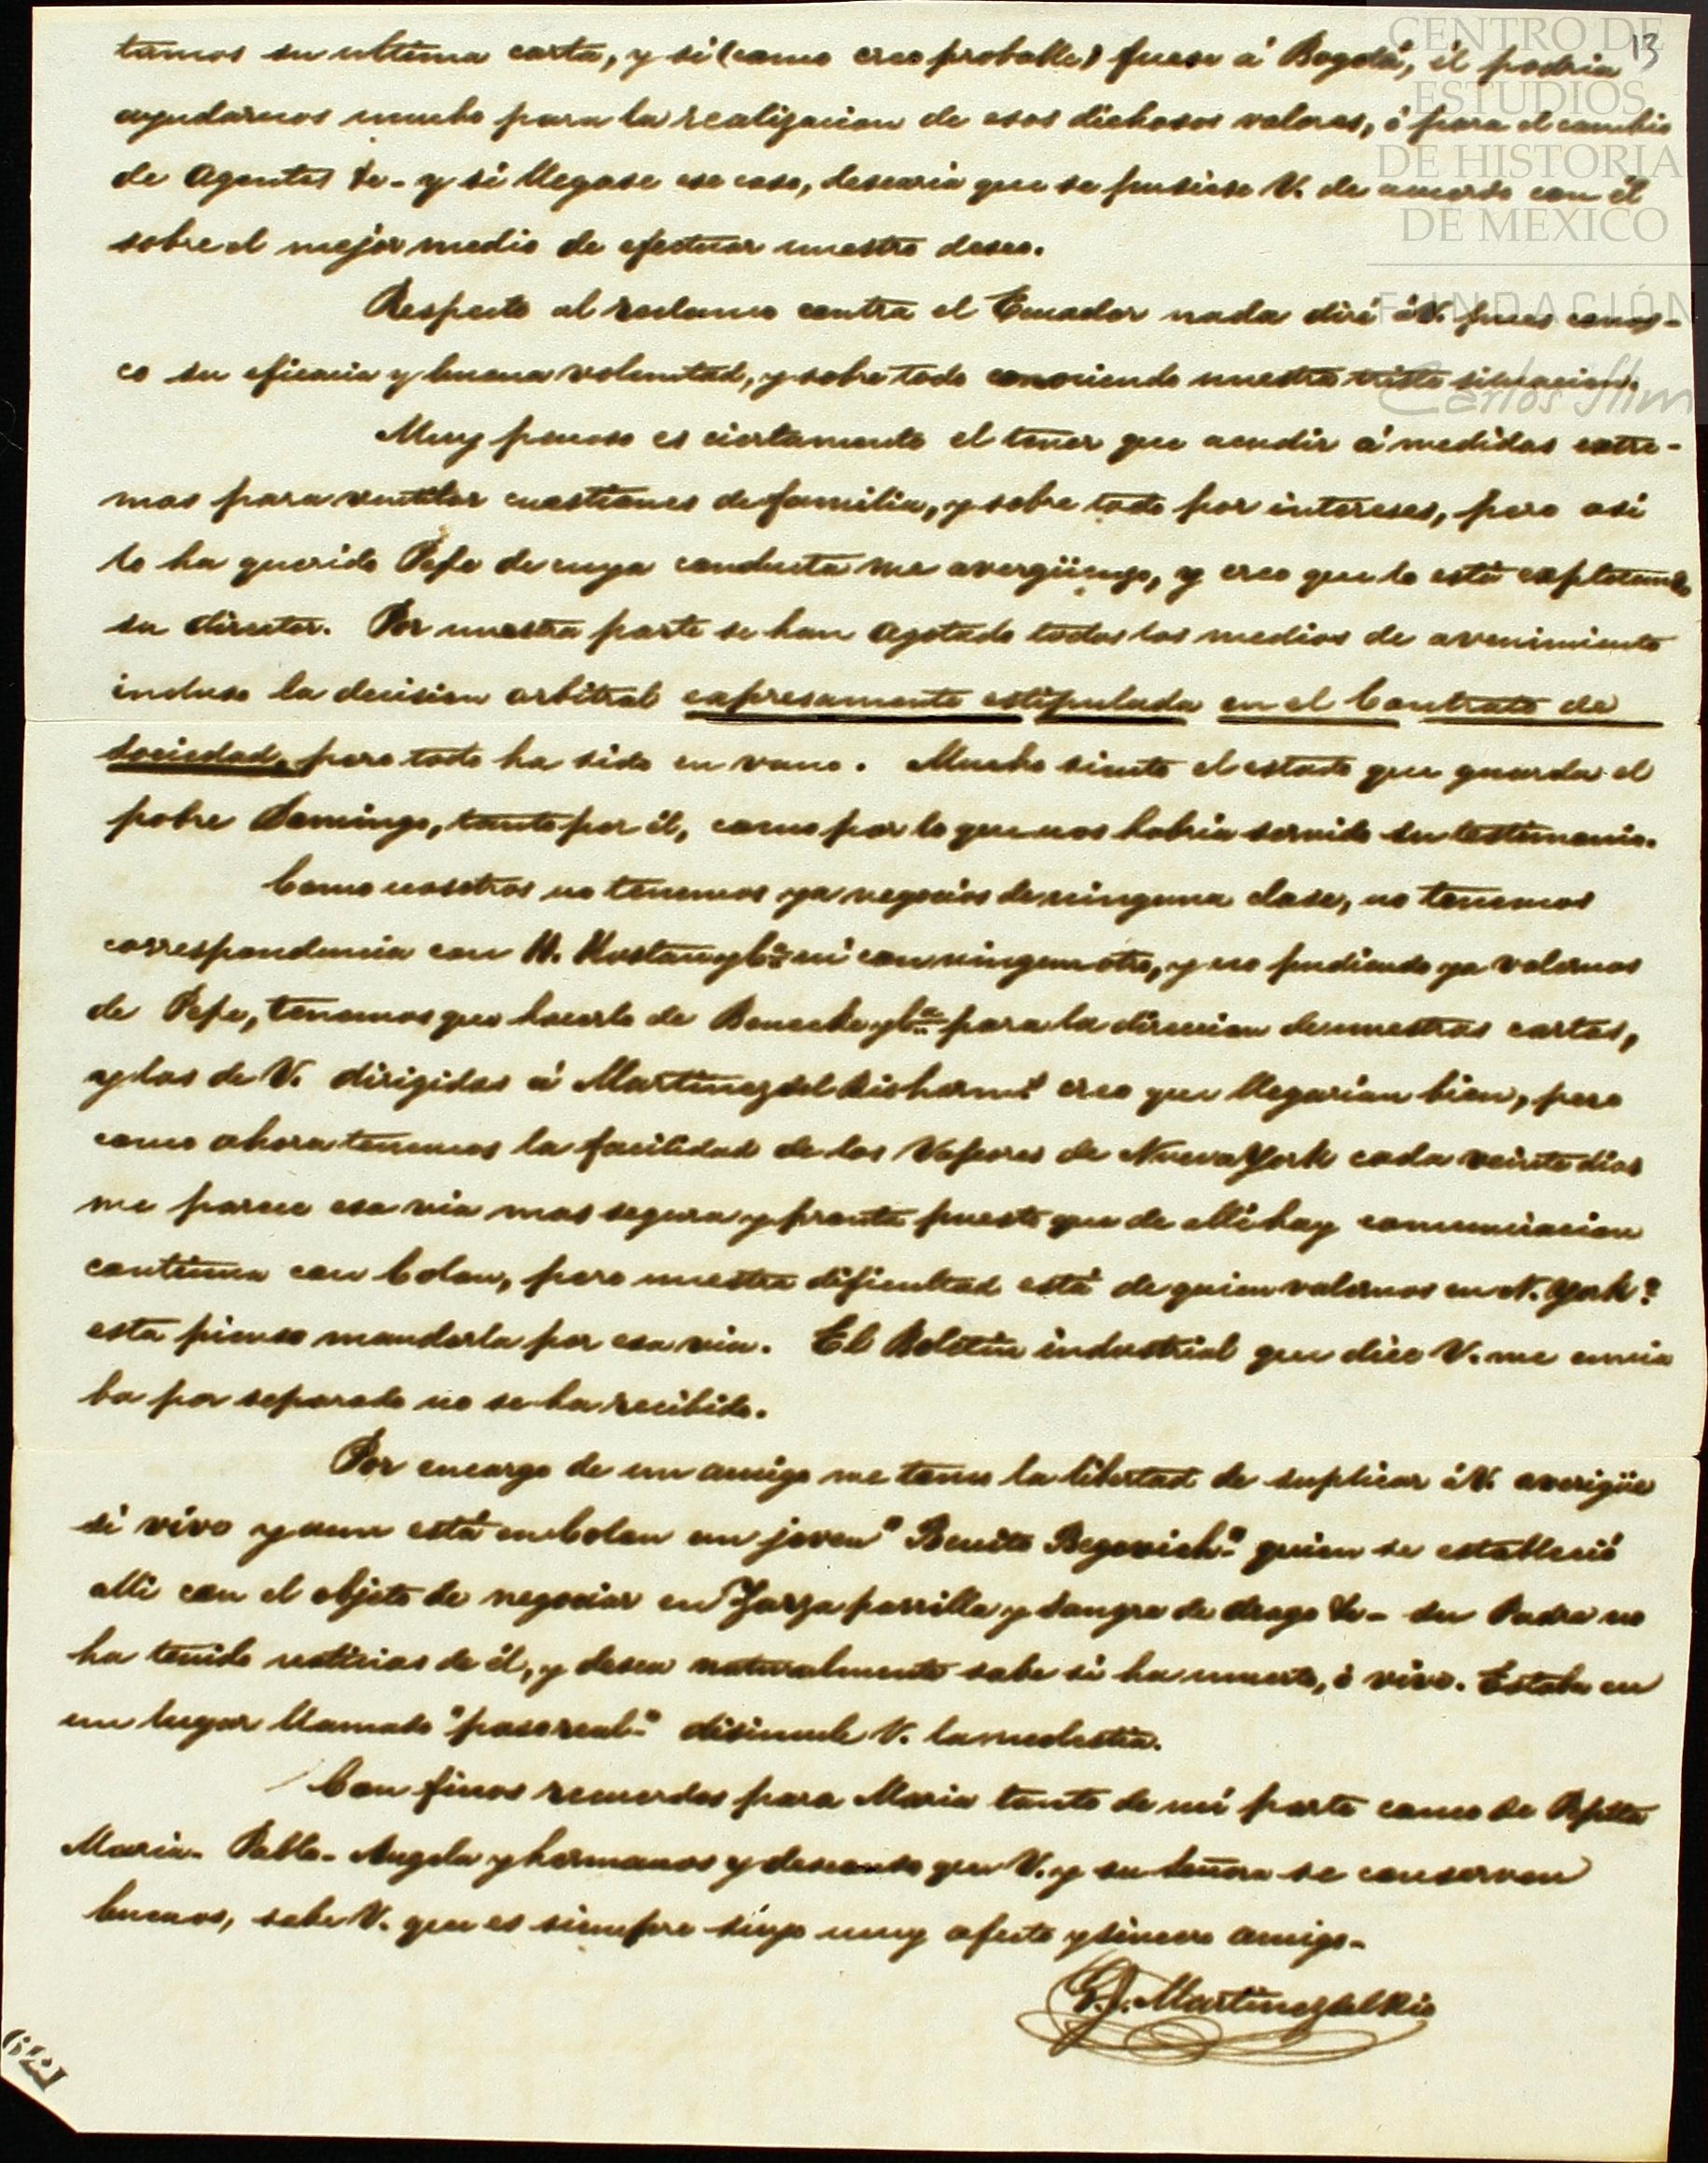 CENTRO DE
ESTUDIOS
DE HISTORIA
DE MEXICO
FUNDACIÓN
Carlos Slim
13
tamos su ultima carta, y si (como creo probable) fuese á Bogotá, él podria
ayudarnos mucho para la realizacion de esos dichosos valores, ó para el cambio
de Agentes &c- y si llegase ese caso, desearia que se pusiese V. de acuerdo con él
sobre el mejor medio de efectuar nuestro deseo.
Respecto al reclamo contra el Ecuador nada diré á V. pues conos-
co su eficacia y buena voluntad, y sobre todo conociendo nuestra triste situacion.
Muy penoso es ciertamente el tener que acudir á medidas extre-
mas para ventilar cuestiones de familia, y sobre todo por intereses, pero asi
lo ha querido Pepe de cuya conducta me avergüenzo, y creo que lo está explotando
su director. Por nuestra parte se han agotado todos los medios de avenimiento
incluso la decision arbitral expresamente estipulada en el Contrato de
Sociedad, pero todo ha sido en vano. Mucho siento el estado que guarda el
pobre Domingo, tanto por él, como por lo que nos habria servido su testimonio.
Como nosotros no tenemos ya negocios de ninguna clase, no tenemos
correspondencia con H. y Cª ni con ningun otro, y no pudiendo ya valernos
de Pepe, tenemos que hacerlo de Benecke y Cª para la direccion de nuestras cartas,
y las de V. dirigidas á Martinez del Rio hermˢ creo que llegarian bien, pero
como ahora tenemos la facilidad de los Vapores de Nueva York cada veinte dias
me parece esa via mas segura y pronta puesto que de alli hay comunicacion
continua con Colon, pero nuestra dificultad está de quien valernos en N. York?
esta pienso mandarla por esa via. El Boletin industrial que dice V. me envia
ba por separado no se ha recibido.
Por encargo de un amigo me tomo la libertad de suplicar á V. averigüe
si vive y aun está en Colon un joven "Benito Begovich" quien se estableció
alli con el objeto de negociar en Zarzaparrilla y Sangre de drago &c- su Padre no
ha tenido noticias de él, y desea naturalmente sabe si ha muerto, ó vive. Estaba en
un lugar llamado "paso real" disimule V. la molestia.
Con finos recuerdos para Maria tanto de mi parte como de Pepita
Maria- Pablo- Angela y hermanos y deseando que V. y su Señora se conserven
buenos, sabe V. que es siempre suyo muy afecto y sincero amigo-
G. Martinez del Rio